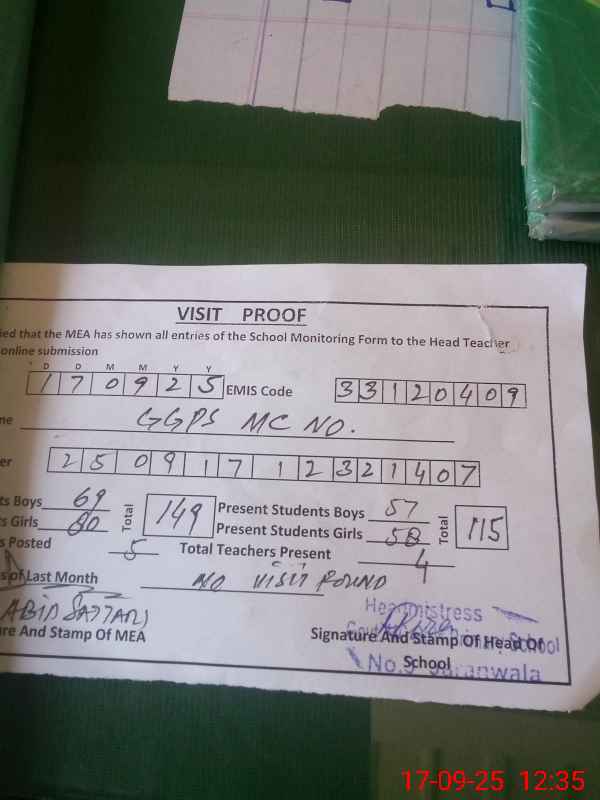 VISIT PROOF
ied that the MEA has shown all entries of the School Monitoring Form to the Head Teacher
online submission
D D M M Y Y
1 7 0 9 2 5 EMIS Code 3 3 1 2 0 4 0 9
me GGPS MC NO.
er 2 5 0 9 1 7 1 2 3 2 1 4 0 7
ts Boys 69 Total 149 Present Students Boys 57 Total 115
ts Girls 80 Present Students Girls 58
s Posted 5 Total Teachers Present 4
s of Last Month NO VISIT ROUND
ABID SATTAR
re And Stamp Of MEA
Headmistress
Signature And Stamp Of Head Of School
School
No. Jaranwala
17-09-25 12:35